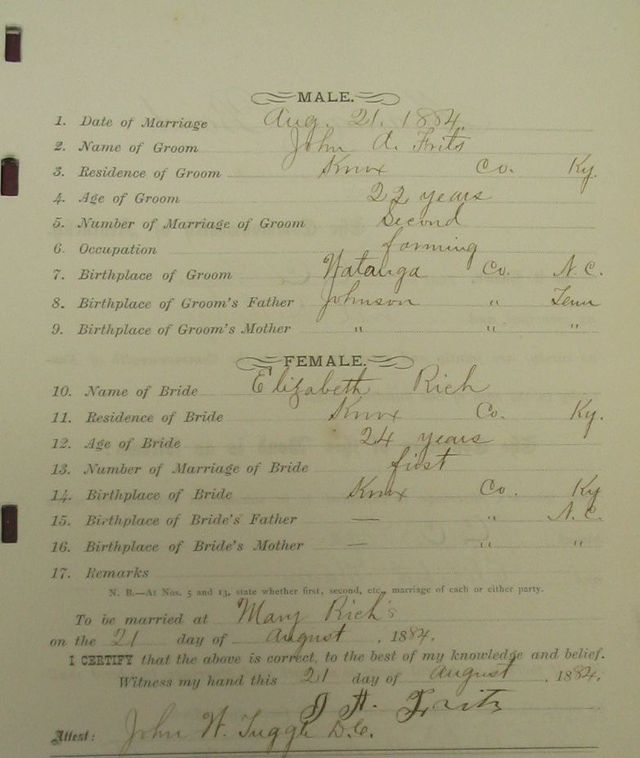 MALE.
1. Date of Marriage Aug. 21. 1884.
2. Name of Groom John A. Frits
3. Residence of Groom Knox Co. Ky.
4. Age of Groom 22 years
5. Number of Marriage of Groom Second
6. Occupation farming
7. Birthplace of Groom Watauga Co. N.C.
8. Birthplace of Groom's Father Johnson " Tenn
9. Birthplace of Groom's Mother " " "
FEMALE.
10. Name of Bride Elizabeth Rich
11. Residence of Bride Knox Co. Ky.
12. Age of Bride 24 years
13. Number of Marriage of Bride first
14. Birthplace of Bride Knox Co. Ky
15. Birthplace of Bride's Father — " N.C.
16. Birthplace of Bride's Mother — " "
17. Remarks
N. B.—At Nos. 5 and 13, state whether first, second, etc., marriage of each or either party.
To be married at Mary Rich's
on the 21 day of August, 1884.
I CERTIFY that the above is correct, to the best of my knowledge and belief.
Witness my hand this 21 day of August, 1884.
J A. Frits
Attest: John W. Tuggle D.C.